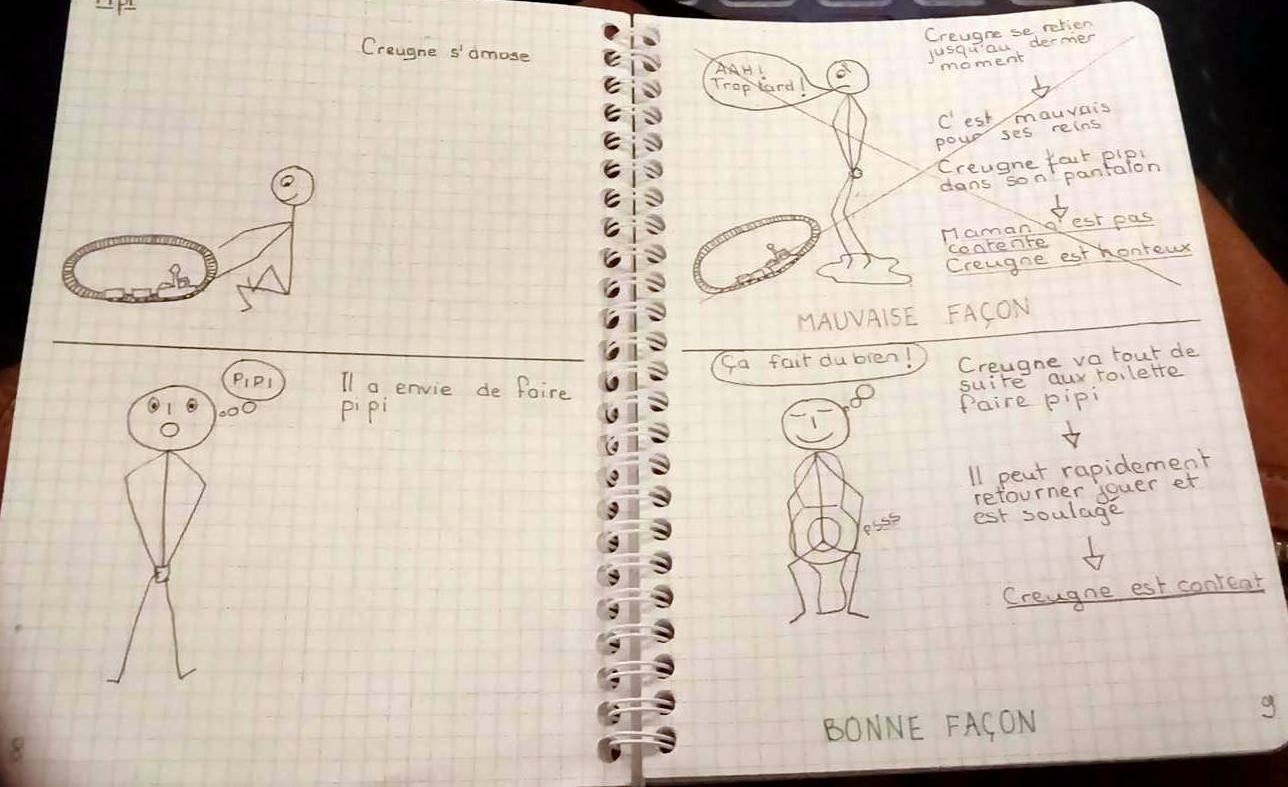 Pipi
Creugne s'amuse
PIPI
Il a envie de faire
pipi
8
AAH!
Trop tard!
Creugne se retien
jusqu'au dernier
moment
C'est mauvais
pour ses reins
Creugne fait pipi
dans son pantalon
Maman n'est pas
contente
Creugne est honteux
MAUVAISE FAÇON
Ça fait du bien!
Creugne va tout de
suite aux toilette
faire pipi
Il peut rapidement
retourner jouer et
est soulagé
psss
Creugne est content
BONNE FAÇON
9